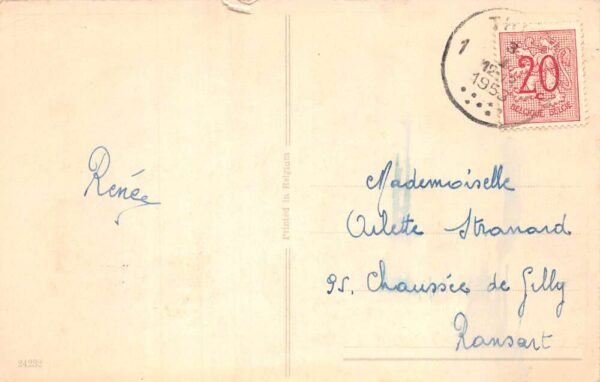 1
1953
20
BELGIQUE BELGIE
Renée
Printed in Belgium
Mademoiselle
Arlette Stranard
95. Chaussée de Gilly
Ransart
24232